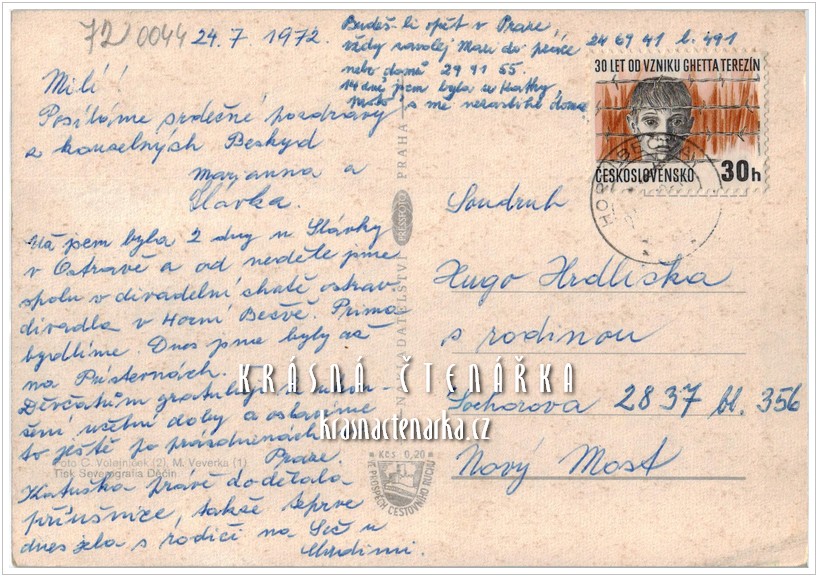 72/0044
24.7 1972.
Budeš-li opět v Praze,
vždy zavolej Mari do práce 24 69 41 l. 491
nebo domů 29 91 55.
14 dnů jsem byla u Katky,
proto s mě nezastihl doma
Milí!
Posíláme srdečné pozdravy
z kouzelných Beskyd
Marjanna a
Slávka.
Už jsem byla 2 dny u Slávky
v Ostravě a od neděle jsme
spolu v divadelní chatě ostrav.
divadla v Horní Bečvě. Prima
bydlíme. Dnes jsme byly až
na Pustevnách.
Děvčatům gratuluji k
šení učební doby a oslavíme
to ještě po prázdninách v
Praze.
Katuška právě dodělala
příušnice, takže teprve
dnes jela s rodiči na Seč u
Chrudimi.
30 LET OD VZNIKU GHETTA TEREZÍN
ČESKOSLOVENSKO 30h
HORNÍ BEČVA
Soudruh
Hugo Hrdlička
s rodinou
Sochorova 2837 bl. 356
Nový Most
VYDAVATELSTVÍ PRESSFOTO PRAHA
KRÁSNÁ ČTENÁŘKA
krasnactenarka.cz
Foto C. Volejníček (2), M. Veverka (1)
Tisk Severografia Děčín
Kčs 0,20
VE PROSPĚCH CESTOVNÍHO RUCHU